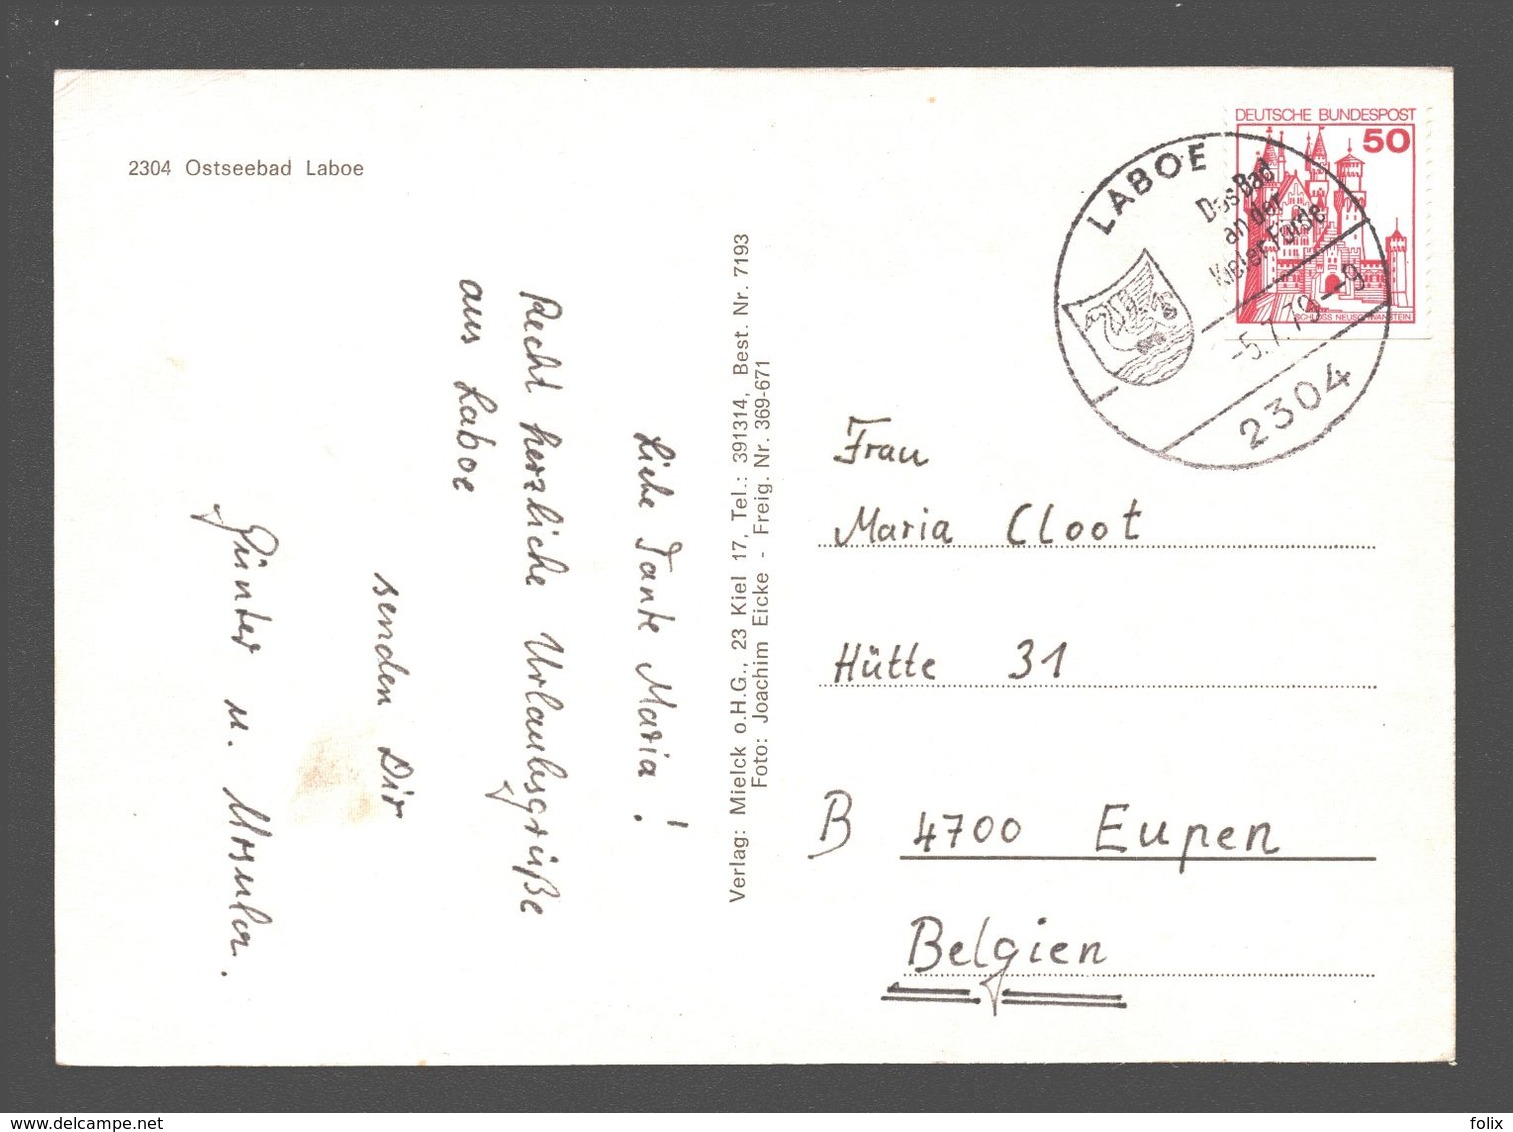 2304 Ostseebad Laboe
Liebe Tante Maria!
Recht herzliche Urlaubsgrüße
aus Laboe
senden Dir
Günter u. Ursula.
Verlag: Mielck o.H.G., 23 Kiel 17, Tel.: 391314, Best. Nr. 7193
Foto: Joachim Eicke - Freig. Nr. 369-671
DEUTSCHE BUNDESPOST
50
SCHLOSS NEUSCHWANSTEIN
LABOE
Das Bad
an der
Kieler Förde
-5.7.79--9
2304
Frau
Maria Cloot
Hütte 31
B 4700 Eupen
Belgien
www.delcampe.net
folix